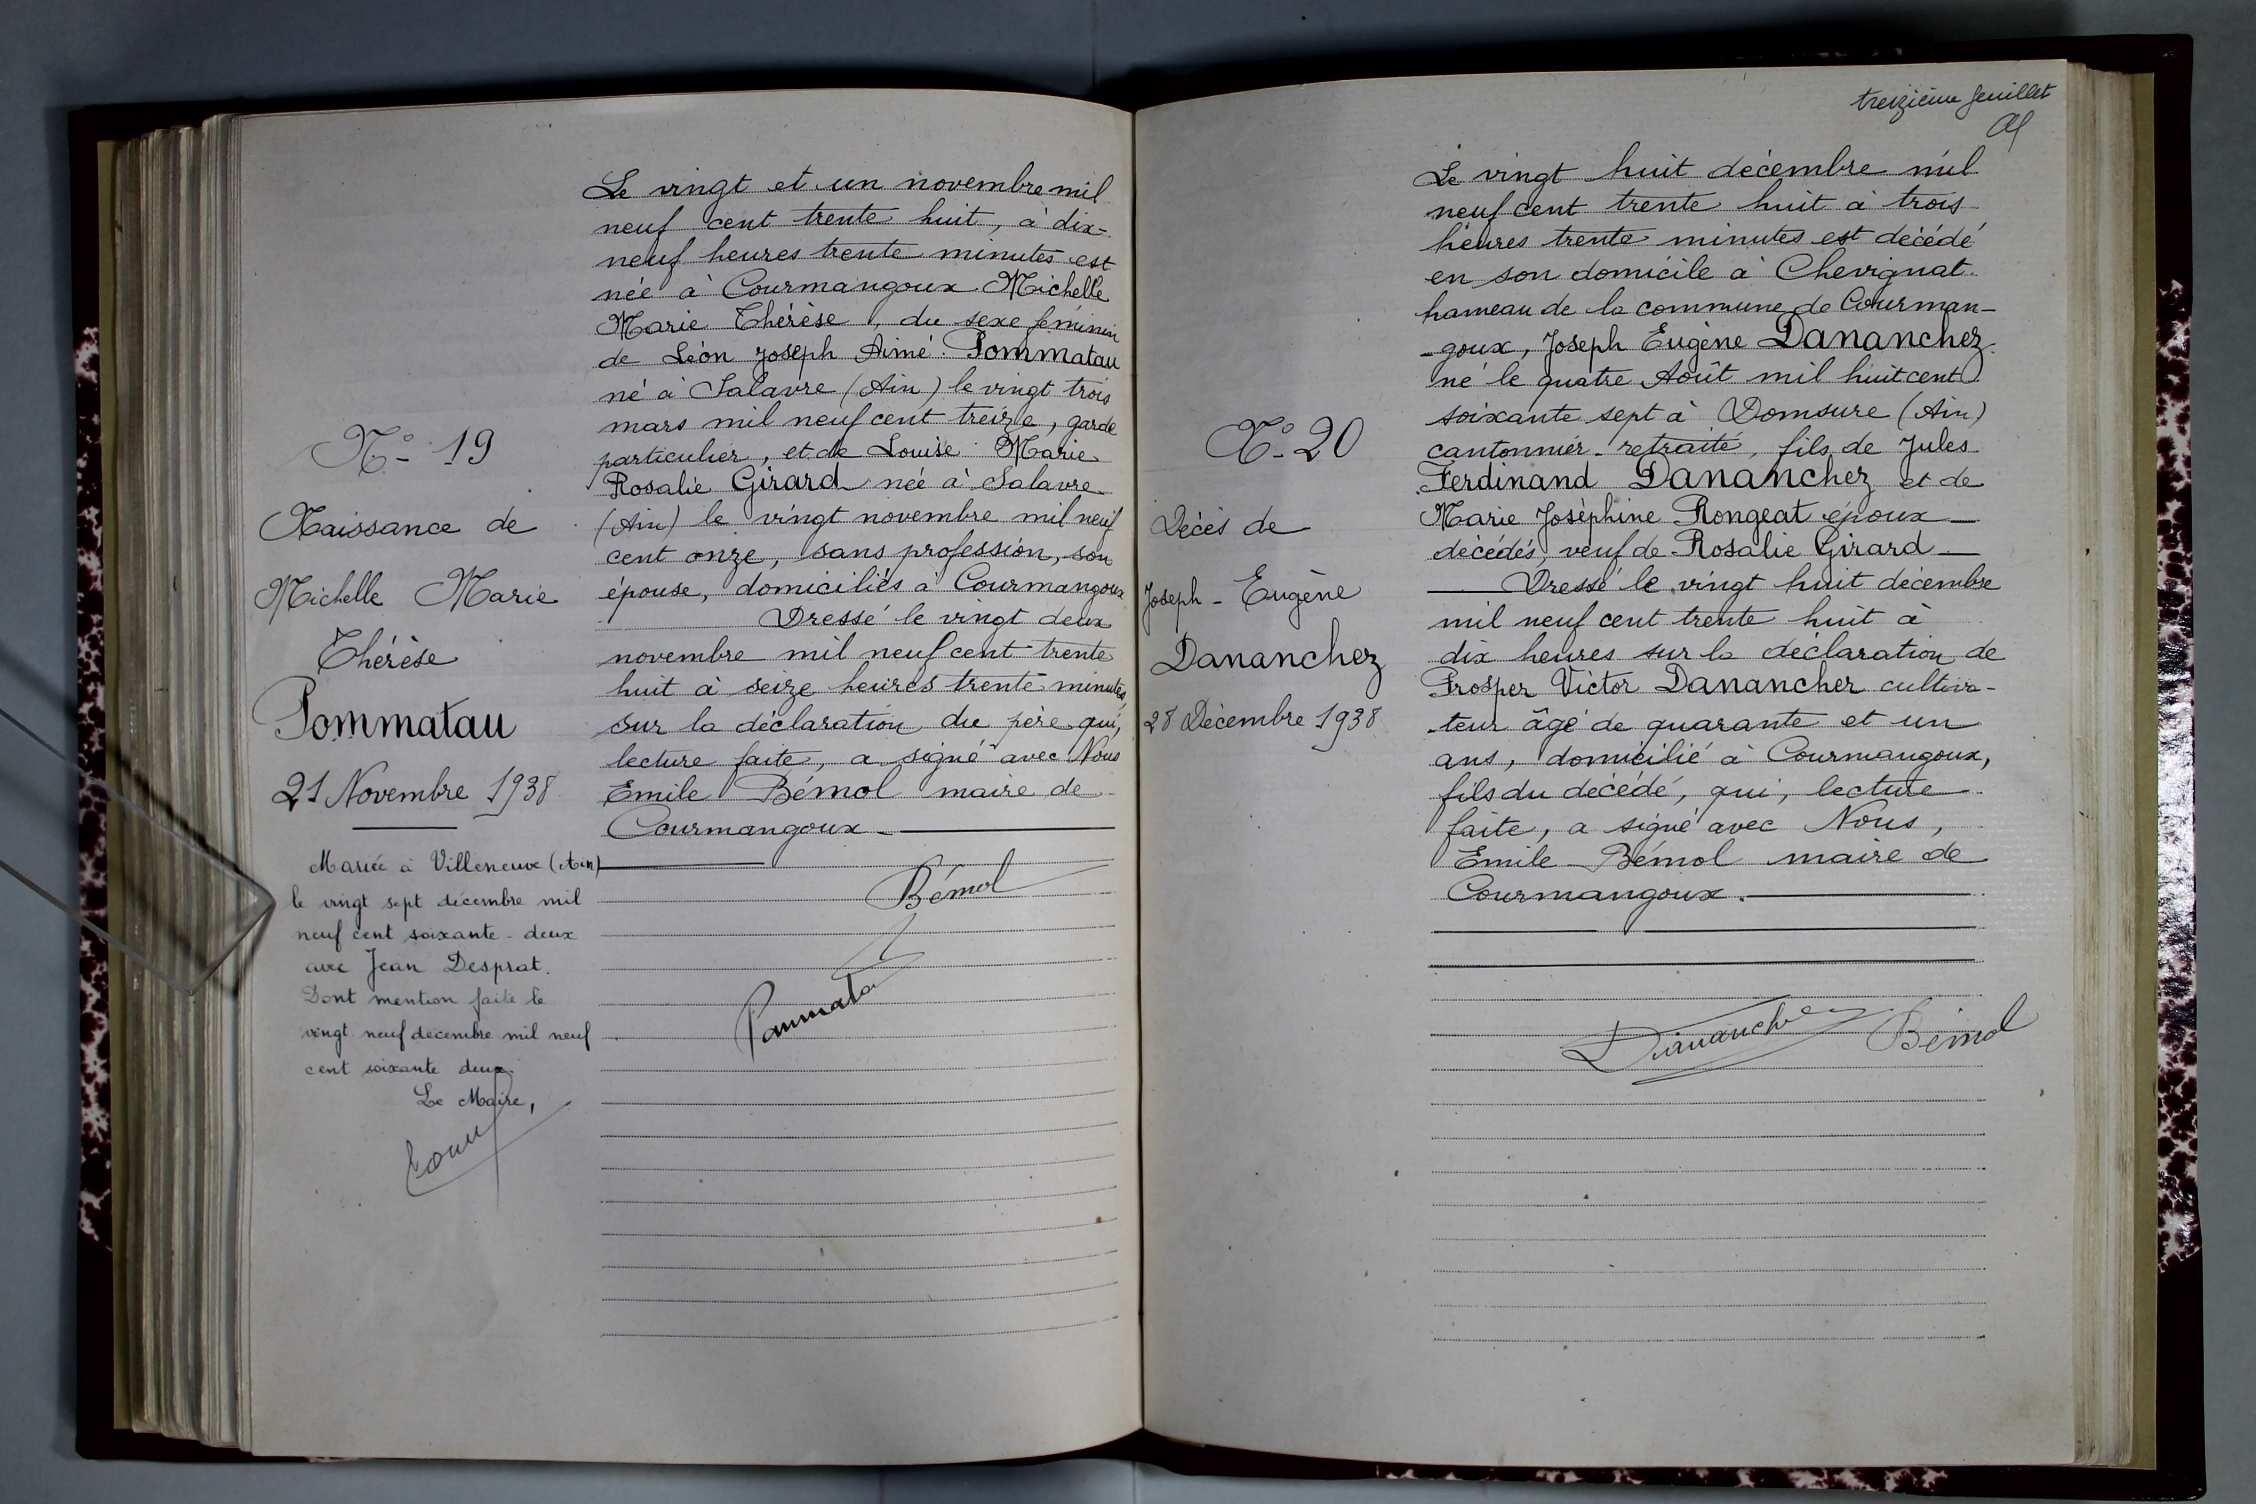 N° 19
Naissance de
Michelle Marie
Thérèse
Pommatau
21 Novembre 1938
Mariée à Villeneuve (Ain)
le vingt sept décembre mil
neuf cent soixante-deux
avec Jean Desprat.
Dont mention faite le
vingt neuf décembre mil neuf
cent soixante deux.
Le Maire,
Le vingt et un novembre mil
neuf cent trente huit, à dix-
neuf heures trente minutes est
née à Courmangoux Michelle
Marie Thérèse, du sexe féminin
de Léon Joseph Aimé Pommatau
né à Salavre (Ain) le vingt trois
mars mil neuf cent treize, garde
particulier, et de Louise Marie
Rosalie Girard née à Salavre
(Ain) le vingt novembre mil neuf
cent onze, sans profession, son
épouse, domiciliés à Courmangoux
Dressé le vingt deux
novembre mil neuf cent trente
huit à seize heures trente minutes
sur la déclaration du père qui,
lecture faite, a signé avec Nous
Emile Bémol maire de
Courmangoux
Bémol
Pommatau
treizième feuillet
N° 20
Décès de
Joseph-Eugène
Dananchez
28 Décembre 1938
Le vingt huit décembre mil
neuf cent trente huit à trois
heures trente minutes est décédé
en son domicile à Chevignat
hameau de la commune de Courman-
-goux, Joseph Eugène Dananchez
né le quatre Août mil huit cent
soixante sept à Domsure (Ain)
cantonnier retraité, fils de Jules
Ferdinand Dananchez et de
Marie Joséphine Rongeat époux
décédés, veuf de Rosalie Girard
Dressé le vingt huit décembre
mil neuf cent trente huit à
dix heures sur la déclaration de
Prosper Victor Dananchez cultiva-
teur âgé de quarante et un
ans, domicilié à Courmangoux,
fils du décédé, qui, lecture
faite, a signé avec Nous,
Emile Bémol maire de
Courmangoux.
Dananchez
Bémol